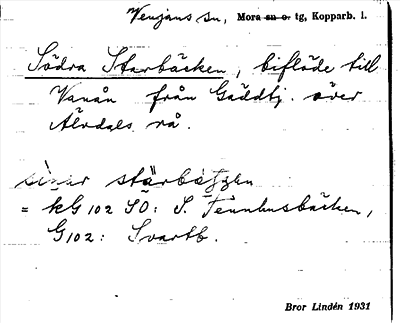 Venjans sn, Mora sn o. tg, Kopparb. l.
Södra Starbäcken, biflöde till
Vanån från Gäddtj. över
Älvdals rå.
starbätzen
= kG 102 SO: S. Tennhusbäcken,
G102: Svartb.
Bror Lindén 1931